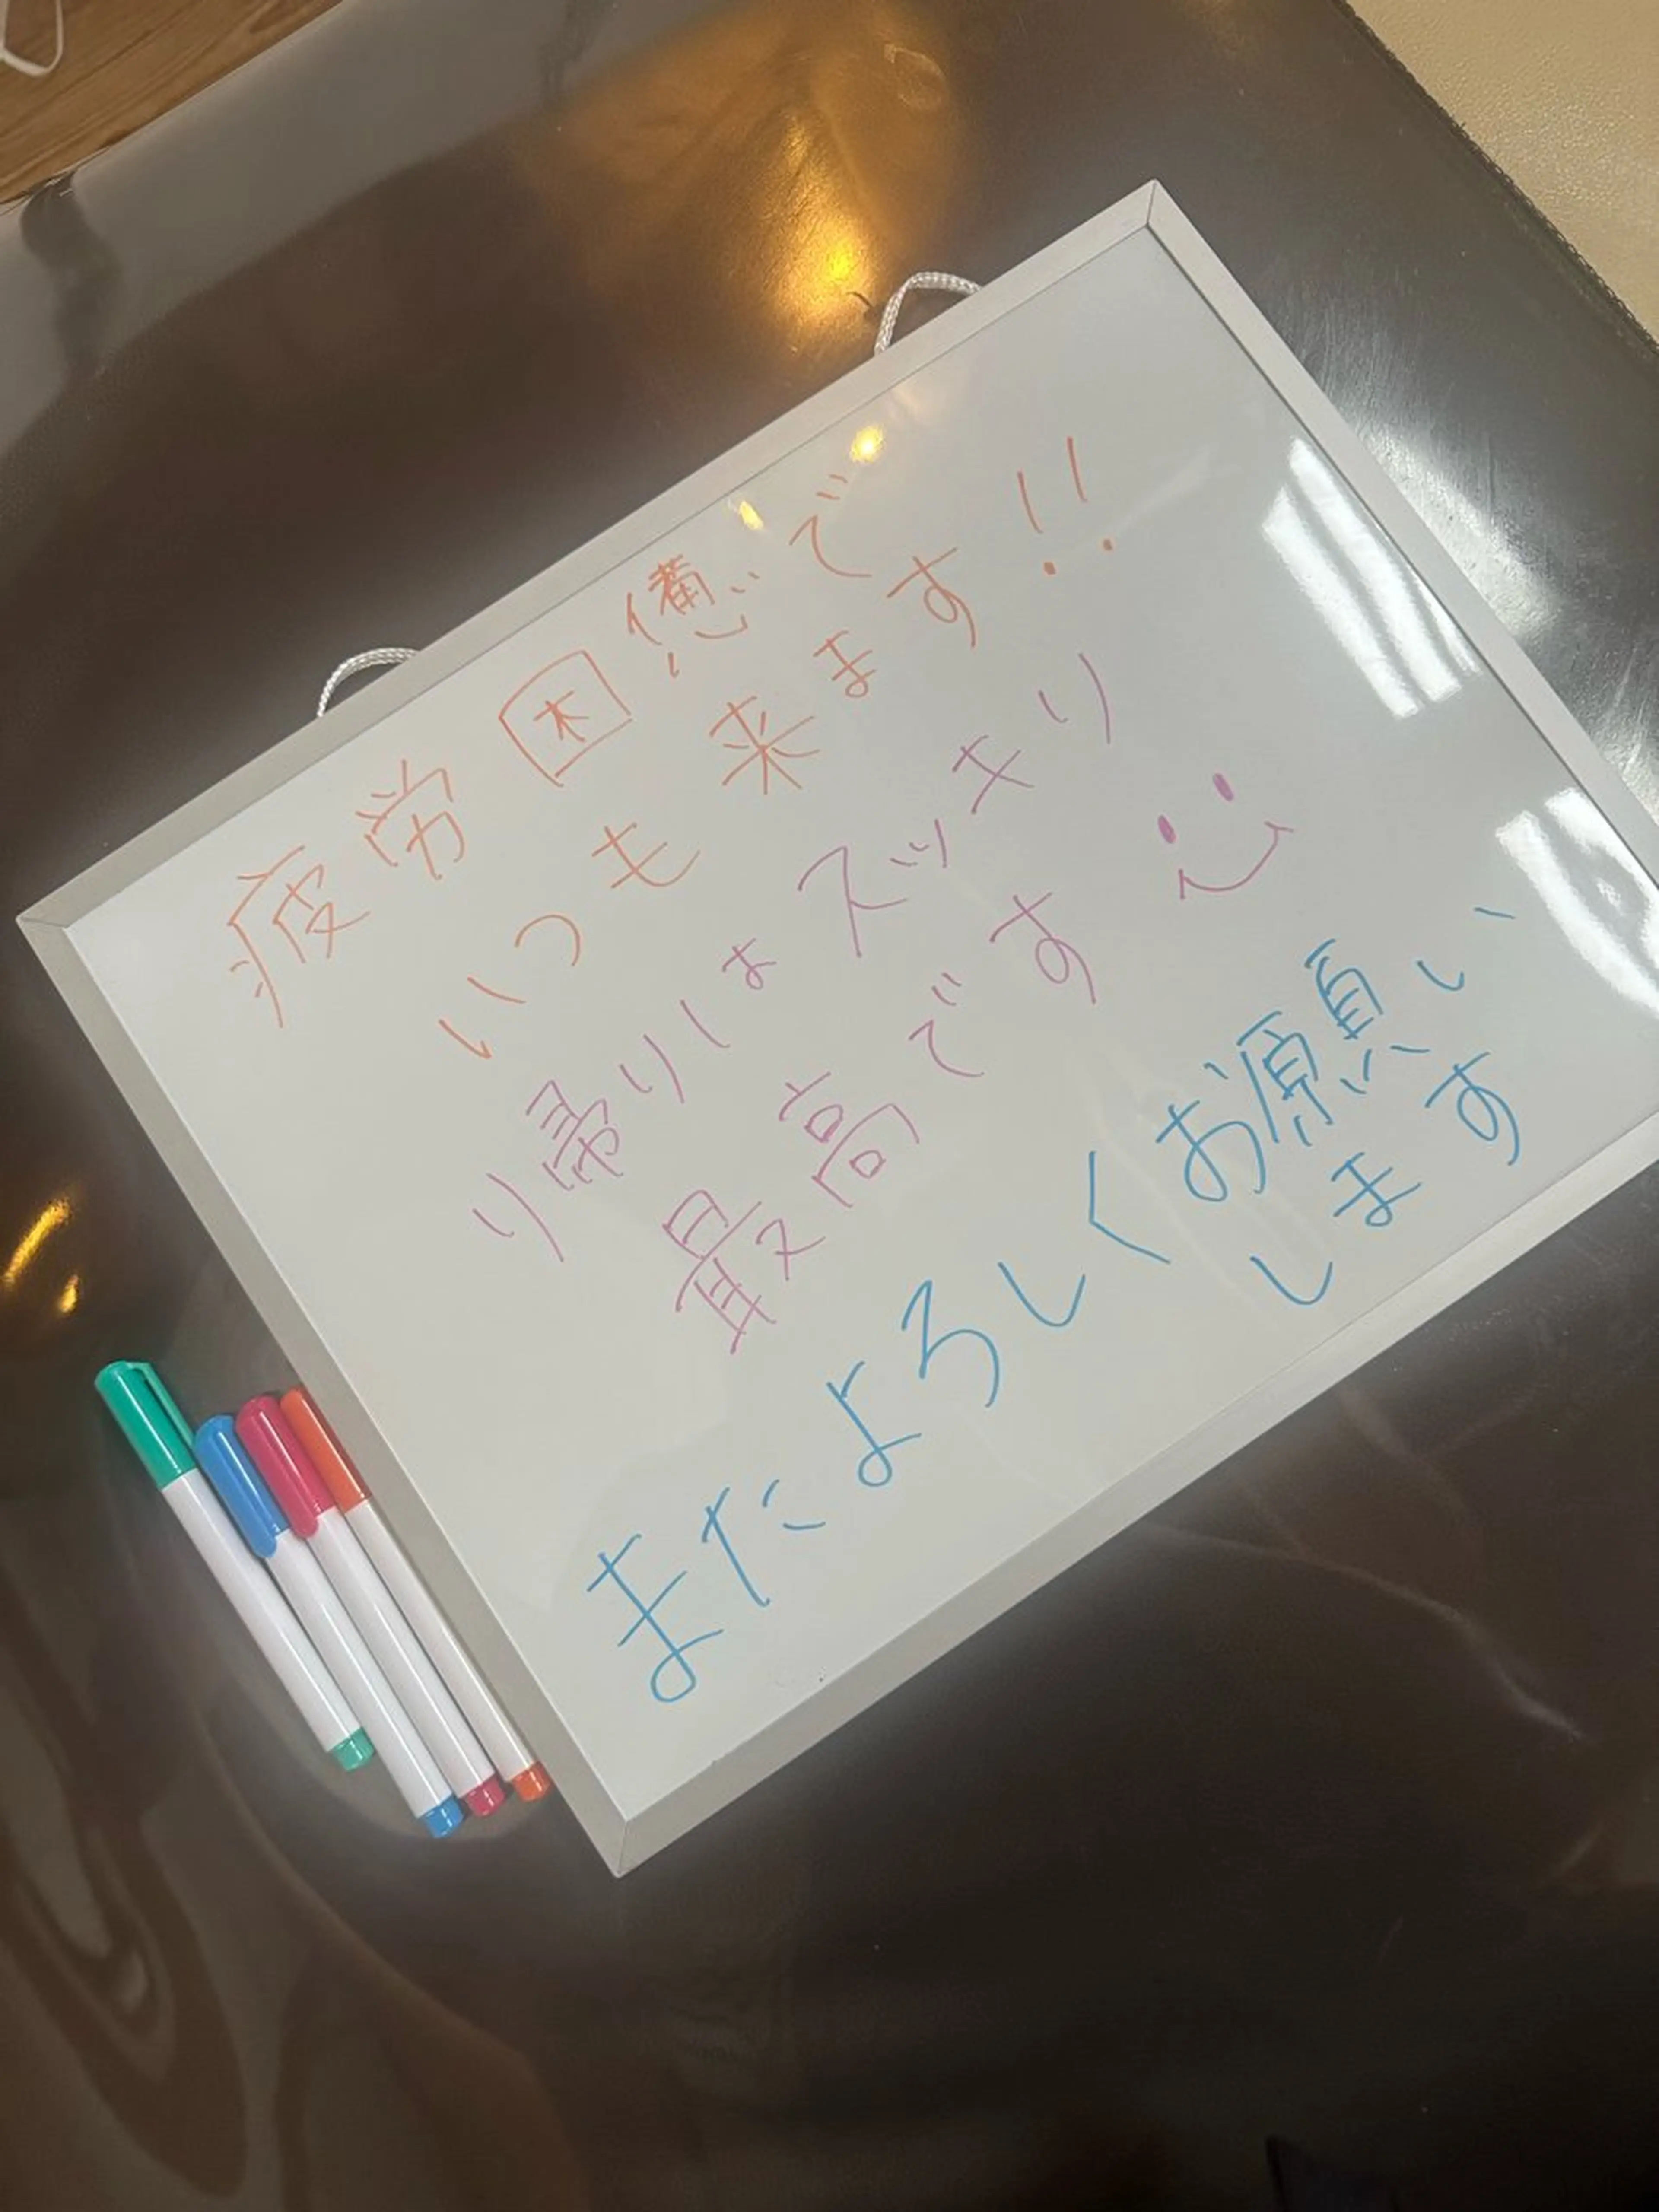 疲労困憊で
いつも来ます!!
り帰りはスッキリ
最高です
またよろしくお願い
します